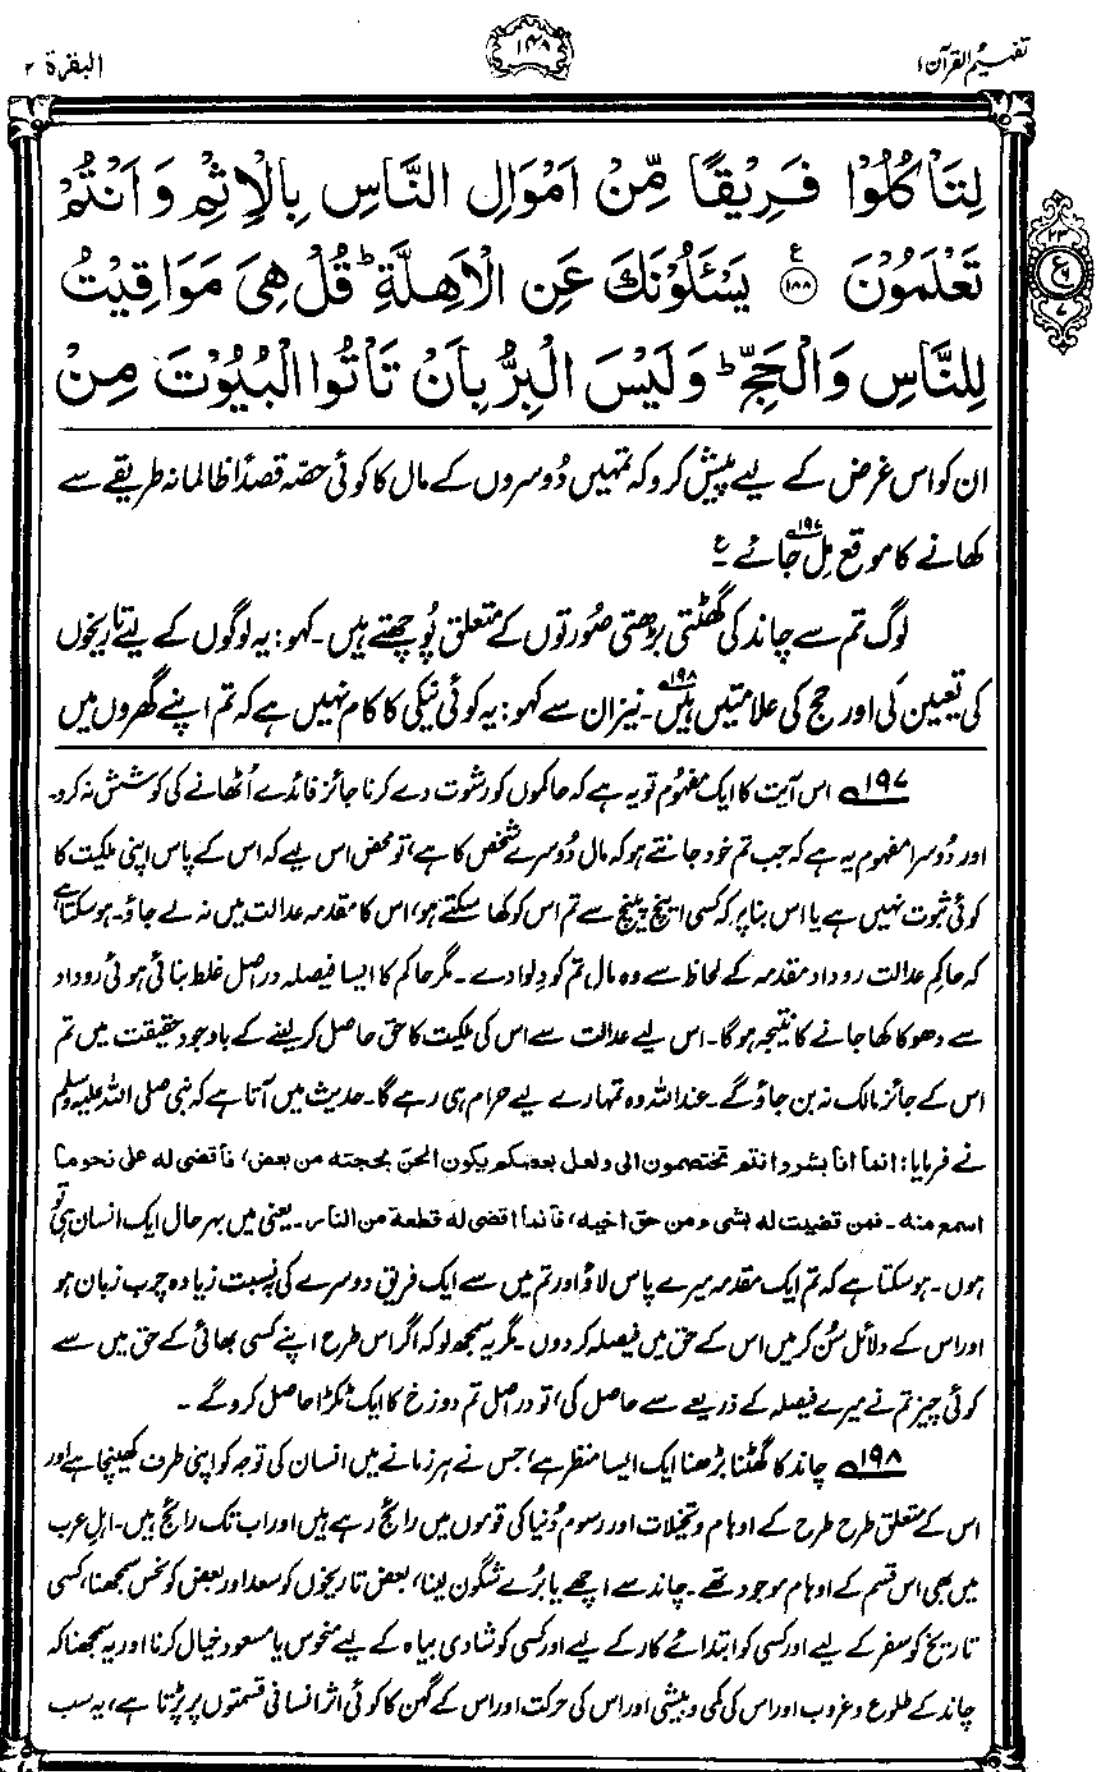 تفہیم القرآن ۱
۱۴۸
البقرة ۲
لِتَاْكُلُوْا فَرِيْقًا مِّنْ اَمْوَالِ النَّاسِ بِالْاِثْمِ وَاَنْتُمْ
تَعْلَمُوْنَ ﴿۱۸۸﴾ ع يَسْـَٔلُوْنَكَ عَنِ الْاَهِلَّةِ ؕ قُلْ هِيَ مَوَاقِيْتُ
لِلنَّاسِ وَالْحَجِّ ؕ وَلَيْسَ الْبِرُّ بِاَنْ تَاْتُوا الْبُيُوْتَ مِنْ
۲۳
ع
۷
ان کو اس غرض کے لیے پیش کرو کہ تمہیں دُوسروں کے مال کا کوئی حصّہ قصداً ظالمانہ طریقے سے
کھانے کا موقع مِل جائے ۱۹۷ ع
لوگ تم سے چاند کی گھٹتی بڑھتی صُورتوں کے متعلق پُوچھتے ہیں۔ کہو: یہ لوگوں کے لیے تاریخوں
کی تعیین کی اور حج کی علامتیں ہیں ۱۹۸۔ نیز ان سے کہو: یہ کوئی نیکی کا کام نہیں ہے کہ تم اپنے گھروں میں
۱۹۷ اس آیت کا ایک مفہُوم تو یہ ہے کہ حاکموں کو رشوت دے کر ناجائز فائدے اُٹھانے کی کوشش نہ کرو۔
اور دُوسرا مفہوم یہ ہے کہ جب تم خود جانتے ہو کہ مال دُوسرے شخص کا ہے، تو محض اس لیے کہ اس کے پاس اپنی ملکیت کا
کوئی ثبوت نہیں ہے یا اس بنا پر کہ کسی اینچ پینچ سے تم اس کو کھا سکتے ہو، اس کا مقدمہ عدالت میں نہ لے جاؤ۔ ہو سکتا ہے
کہ حاکمِ عدالت روداد مقدمہ کے لحاظ سے وہ مال تم کو دِلوا دے۔ مگر حاکم کا ایسا فیصلہ دراصل غلط بنائی ہوئی روداد
سے دھوکا کھا جانے کا نتیجہ ہو گا۔ اس لیے عدالت سے اس کی ملکیت کا حق حاصل کر لینے کے باوجود حقیقت میں تم
اس کے جائز مالک نہ بن جاؤ گے۔ عنداللہ وہ تمہارے لیے حرام ہی رہے گا۔ حدیث میں آتا ہے کہ نبی صلی اللہ علیہ وسلم
نے فرمایا: انما انا بشر و انتم تختصمون الی ولعل بعضکم یکون الحن بحجته من بعض، فاقضی له علی نحو ما
اسمع منه۔ فمن قضیت له بشیء من حق اخیه، فانما اقضی له قطعة من النار۔ یعنی میں بہرحال ایک انسان ہی تو
ہوں۔ ہو سکتا ہے کہ تم ایک مقدمہ میرے پاس لاؤ اور تم میں سے ایک فریق دوسرے کی بہ نسبت زیادہ چرب زبان ہو
اور اس کے دلائل سُن کر میں اس کے حق میں فیصلہ کر دوں۔ مگر یہ سمجھ لو کہ اگر اس طرح اپنے کسی بھائی کے حق میں سے
کوئی چیز تم نے میرے فیصلہ کے ذریعے سے حاصل کی، تو دراصل تم دوزخ کا ایک ٹکڑا حاصل کرو گے ۔
۱۹۸ چاند کا گھٹنا بڑھنا ایک ایسا منظر ہے، جس نے ہر زمانے میں انسان کی توجہ کو اپنی طرف کھینچا ہے اور
اس کے متعلق طرح طرح کے اوہام و تخیلات اور رسوم دُنیا کی قوموں میں رائج رہے ہیں اور اب تک رائج ہیں۔ اہلِ عرب
میں بھی اس قسم کے اوہام موجود تھے۔ چاند سے اچھے یا بُرے شگون لینا، بعض تاریخوں کو سعد اور بعض کو نحس سمجھنا، کسی
تاریخ کو سفر کے لیے اور کسی کو ابتدائے کار کے لیے اور کسی کو شادی بیاہ کے لیے منحوس یا مسعود خیال کرنا اور یہ سمجھنا کہ
چاند کے طلوع و غروب اور اس کی کمی و بیشی اور اس کی حرکت اور اس کے گہن کا کوئی اثر انسانی قسمتوں پر پڑتا ہے، یہ سب